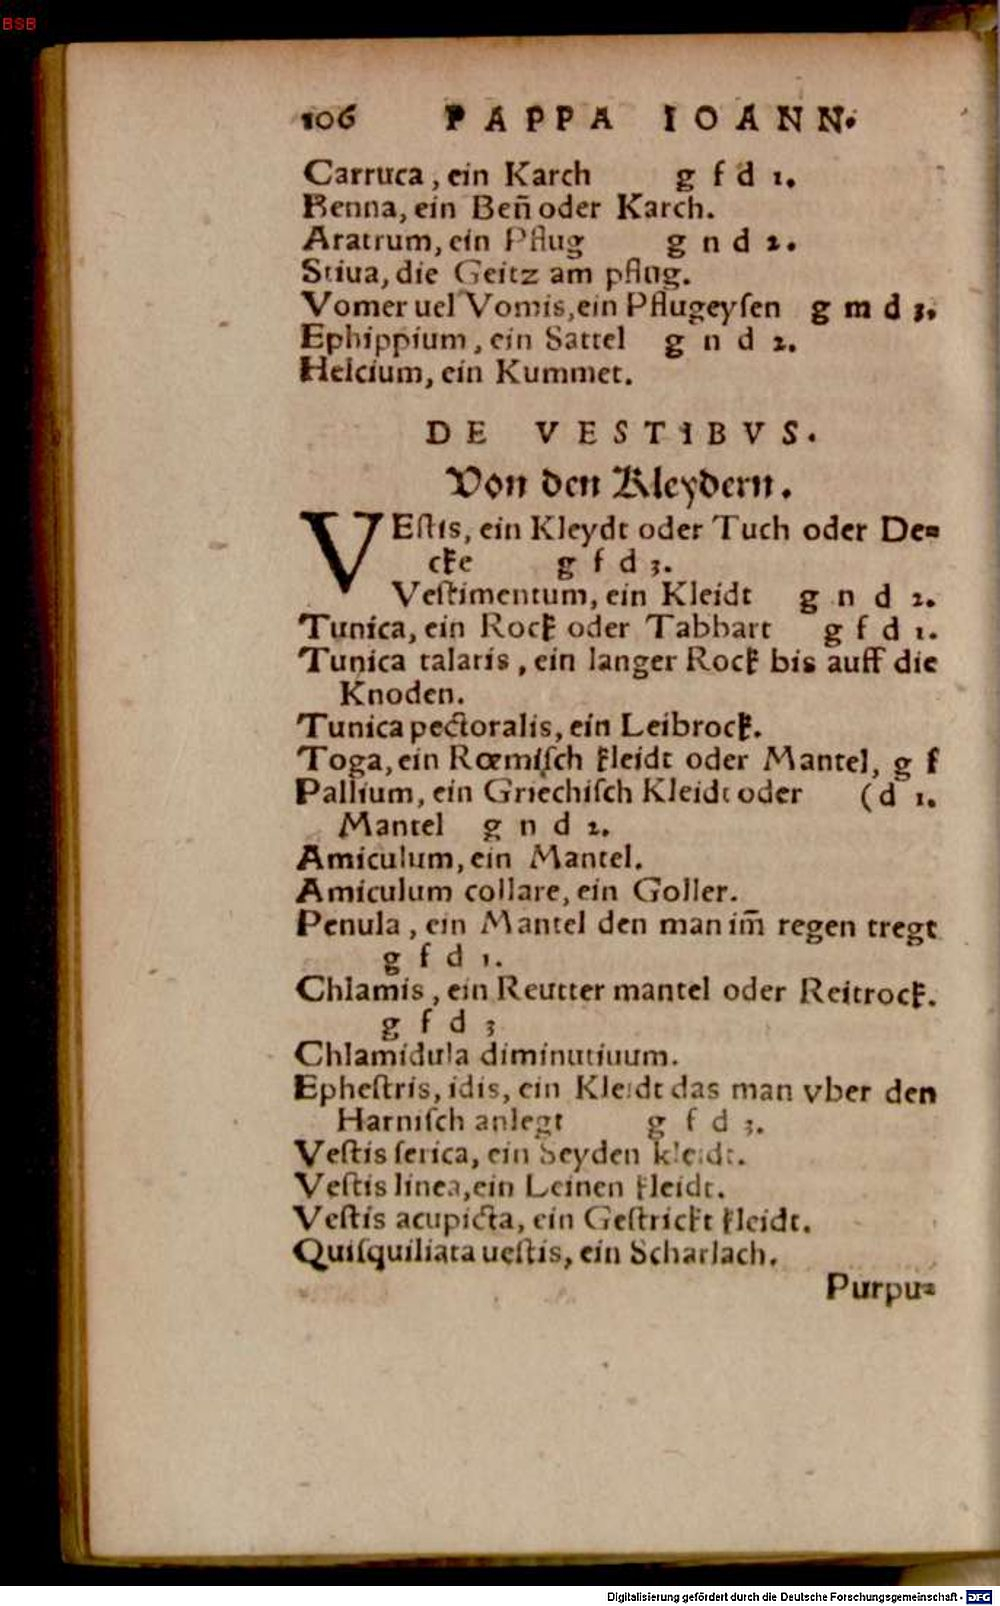 BSB
106 PAPPA IOANN.
Carruca, ein Karch g f d 1.
Benna, ein Beñ oder Karch.
Aratrum, ein Pflug g n d 2.
Stiua, die Geitz am pflug.
Vomer uel Vomis, ein Pflugeyſen g m d 3.
Ephippium, ein Sattel g n d 2.
Helcium, ein Kummet.
DE VESTIBVS.
Von den Kleydern.
VEſtis, ein Kleydt oder Tuch oder De⸗
cke g f d 3.
Veſtimentum, ein Kleidt g n d 2.
Tunica, ein Rock oder Tabbart g f d 1.
Tunica talaris, ein langer Rock bis auff die
Knoden.
Tunica pectoralis, ein Leibrock.
Toga, ein Rœmiſch kleidt oder Mantel, g f
Pallium, ein Griechiſch Kleidt oder (d 1.
Mantel g n d 2.
Amiculum, ein Mantel.
Amiculum collare, ein Goller.
Penula, ein Mantel den man im̄ regen tregt
g f d 1.
Chlamis, ein Reutter mantel oder Reitrock.
g f d 3
Chlamidula diminutiuum.
Epheſtris, idis, ein Kleidt das man vber den
Harniſch anlegt g f d 3.
Veſtis ſerica, ein Seyden kleidt.
Veſtis linea, ein Leinen kleidt.
Veſtis acupicta, ein Geſtrickt kleidt.
Quiſquiliata ueſtis, ein Scharlach.
Purpu⸗
Digitalisierung gefördert durch die Deutsche Forschungsgemeinschaft - DFG